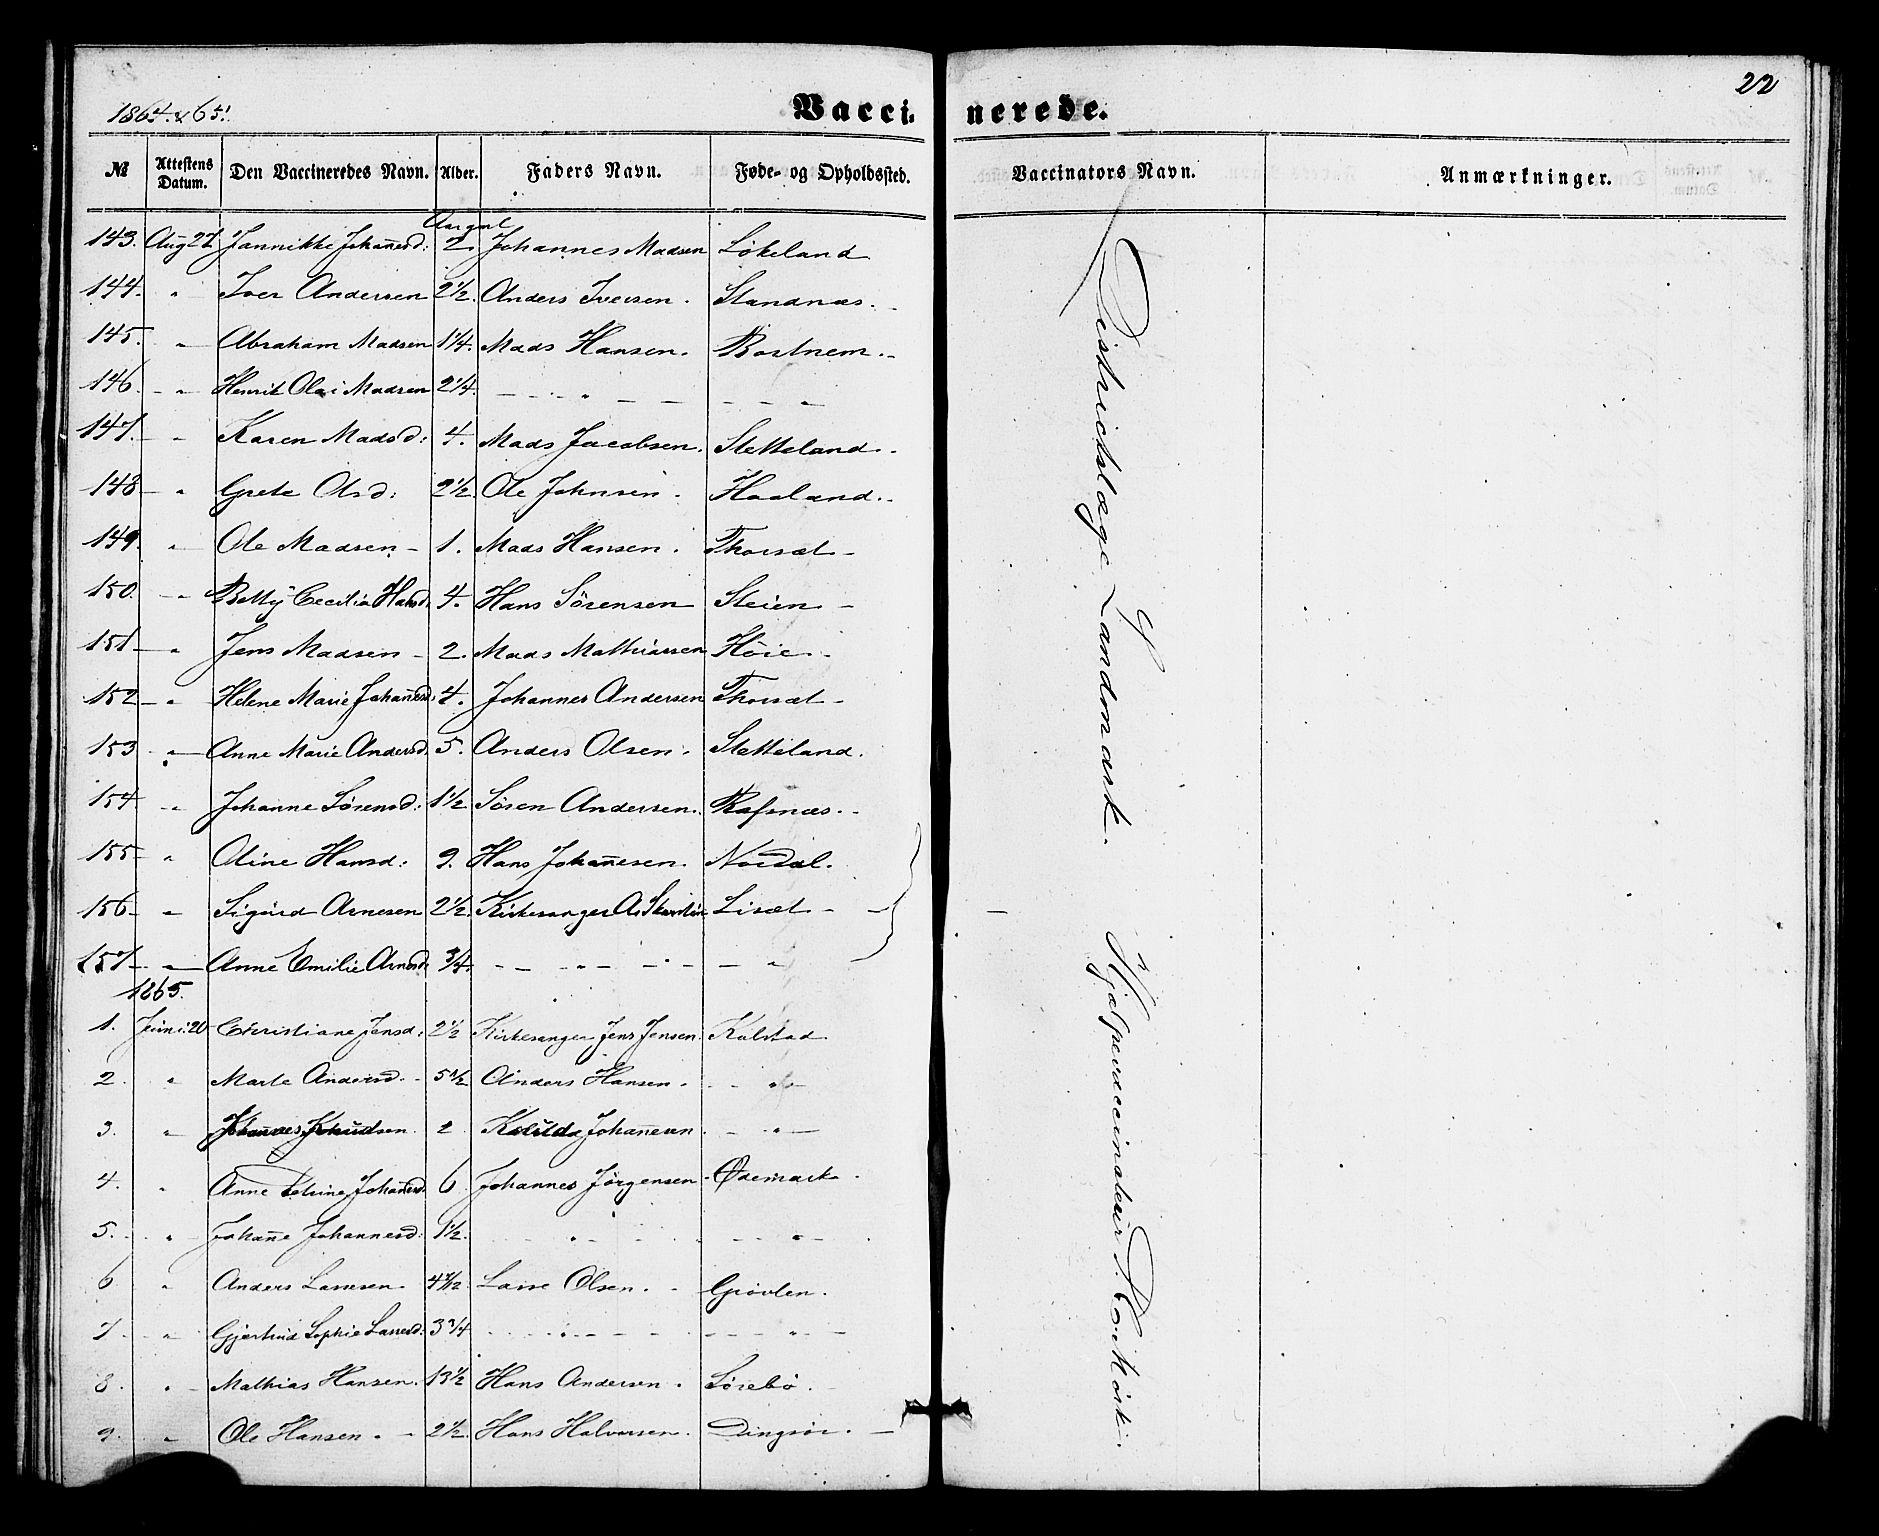 22
1864 & 65.
Vaccinerede.
№ Attestens Datum. Den Vaccineredes Navn. Alder. Faders Navn. Føde- og Opholdssted. Vaccinators Navn. Anmærkninger.
143. Aug 27 Jannikke Johañesd: 2 Johannes Madsen Løkeland
144. " Iver Andersen 2 1/2. Anders Iversen. Standnæs.
145. " Abraham Madsen 1 1/4. Mads Hansen. Rostnem.
146. " Henrik Olai Madsen 2 1/4. " "
147. " Karen Madsd: 4. Mads Jacobsen. Stetteland.
148 " Grete Olsd: 2 1/2. Ole Johnsen. Haaland.
149. " Ole Madsen 1. Mads Hansen. Thorsæt
150. " Betty Cecilia Hansd. 4. Hans Sørensen Steien
151 " Jens Madsen 2. Mads Mathiassen Høie
152 " Helene Marie Johañesd: 4. Johannes Andersen Thorsæt
153 " Anne Marie Andersd. 5. Anders Olsen. Stetteland.
154 " Johanne Sørensd: 1 1/2 Søren Andersen. Rafsnæs.
155 " Oline Hansd: 9. Hans Johañesen. Nordal.
156 " Sigurd Arnesen 2 1/2. Kirkesanger A. Lisæt
157 " Anne Emilie Arnesd. 3/4. " "
1865.
1. Juni 20 Christiane Jensd: 2 1/2 Kirkesanger Jens Jensen. Kalstad
2. " Marte Andersd. 5 1/2 Anders Hansen. "
3. " Johannes Knudsen. 2 Johañesen "
4. " Anne Petrine Johañesd. 6 Johannes Jørgensen Ødemark.
5. " Johañe Johannesd: 1 1/2. " "
6 " Anders Lassesen 4 1/2 Lasse Olsen. Grovlen.
7. " Gjertrud Sophie Lassesd: 3 3/4 " "
8. " Mathias Hansen. 13 1/2 Hans Andersen. Sørebø.
9. " Ole Hansen. 2 1/2. Hans Halvorsen. Dingsør.
Districtslæge Landmark. Hjælpevaccinateur